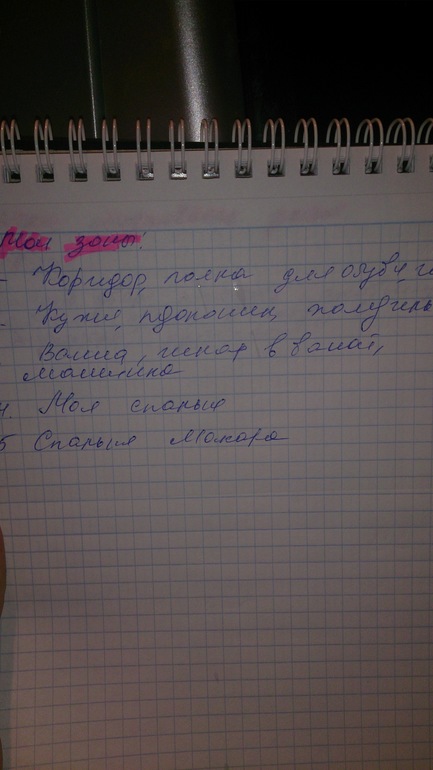 Мои зоны:
- Коридор, полка для обуви,
- Кухня, холодиль
Ванна, шкаф в ваной,
машинка
4. Моя спальня
5 Спальня Макара